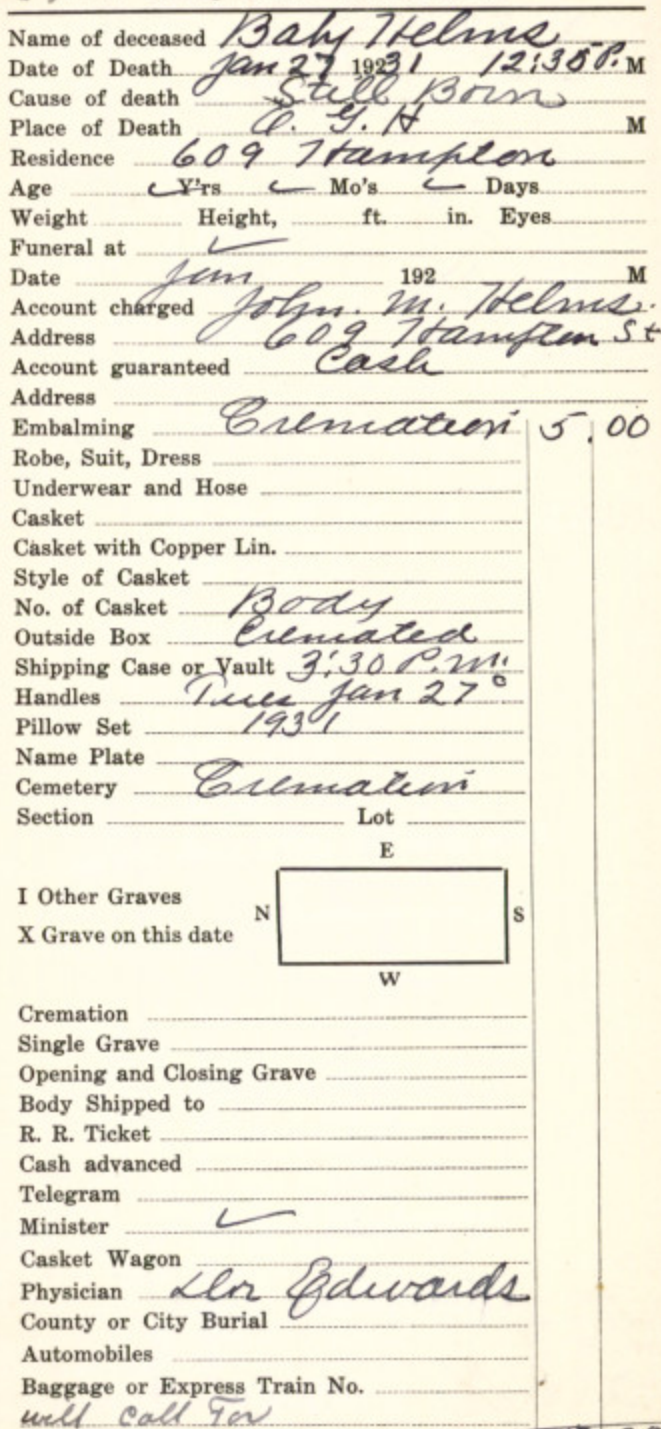 Name of deceased Baby Helms
Date of Death Jan 27 1931 12:35 P. M
Cause of death Still Born
Place of Death G. H M
Residence 609 Hampton
Age Y'rs Mo's Days
Weight Height, ft. in. Eyes
Funeral at
Date Jan 192 M
Account charged John. M. Helms.
Address 609 Hampton St
Account guaranteed Cash
Address
Embalming Cremation 5.00
Robe, Suit, Dress
Underwear and Hose
Casket
Casket with Copper Lin.
Style of Casket
No. of Casket Body
Outside Box Cremated
Shipping Case or Vault 3:30 P.M.
Handles Tues Jan 27
Pillow Set 1931
Name Plate
Cemetery Cremation
Section Lot
E
I Other Graves
N S
X Grave on this date
W
Cremation
Single Grave
Opening and Closing Grave
Body Shipped to
R. R. Ticket
Cash advanced
Telegram
Minister
Casket Wagon
Physician Edwards
County or City Burial
Automobiles
Baggage or Express Train No.
will Call For